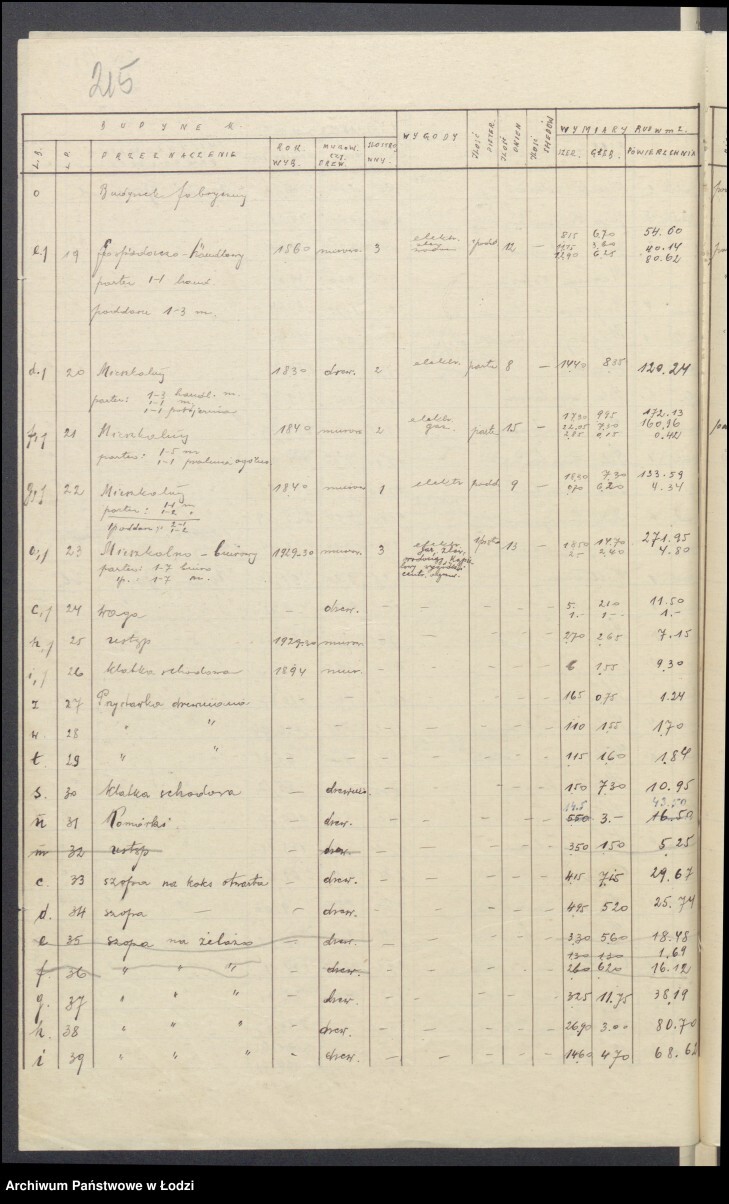 215
BUDYNEK.
L.J. L.A. PRZEZNACZENIE ROK WYB. MUROW. CZY DREW. ILOSTRO NNY. WYGODY ILOŚĆ PIĘTER. ILOŚĆ OKIEN ILOŚĆ WYMIARY RZUT W m 2.
SZER. GŁĘB. POWIERZCHNIA
o Budynek fabryczny
e.f 19 Gospodarczo-handlowy 1860 murow. 3 elektr. podd 12 — 815 6.70 54.60
40.14
parter 1-1 12.90 6.25 80.62
poddasze 1-3 m.
d.f 20 Mieszkalny 1830 drew. 2 elektr. parter 8 — 14.40 8.35 120.24
parter: 1-3 handl. m.
1-1 m.
f.f 21 Mieszkalny 1840 murow 2 elektr. gaz. parter 15 — 17.30 9.95 172.13
22.05 7.30 160.96
parter: 1-5 m 2.85 0.15 0.42
1-1 pralnia ogólna
g.f 22 Mieszkalny 1840 murow 1 elektr podd 9 — 18.30 7.30 133.59
.70 6.20 4.34
parter: 1-1 m
1-2 "
poddasz: 2-1
1-2
23 Mieszkalno-biurowy 1929-30 murow. 3 elektr. 1 piętro 13 — 18.50 14.70 271.95
gaz, zlew, 2.5 2.40 4.80
parter: 1-7 biuro
Ip. : 1-7 m.
c,f 24 waga — drew. — — — — — 5. 2.10 11.50
1.- 1.- 1.-
h,f 25 ustęp 1929-30 murow — — — — — 2.70 2.65 7.15
i,f 26 klatka schodowa 1894 mur. — — — — — 6 1.55 9.30
z 27 Przystawka drewniana — — — — — — — 165 0.75 1.24
w 28 " " — — — — — — — 110 1.55 1.70
t. 29 " " — — — — — — — 115 1.60 1.84
s. 30 klatka schodowa — drewnian. — — — — — 150 7.30 10.95
14.5 43.50
n 31 Komórki. — drew. — — — — — 550 3.- 16.50
m 32 ustęp — drew. — — — — — 350 1.50 5.25
c. 33 szopa na koks otwarta — drew. — — — — — 415 7.15 29.67
d. 34 szopa — — drew. — — — — — 495 5.20 25.74
e 35 szopa na żelazo — drew. — — — — — 330 5.60 18.48
130 1.30 1.69
f. 36 " " " — drew. — — — — — 260 6.20 16.12
g. 37 " " " — drew. — — — — — 325 11.75 38.19
h. 38 " " " — drew. — — — — — 26.90 3.00 80.70
i 39 " " " — drew. — — — — — 14.60 4.70 68.62
Archiwum Państwowe w Łodzi